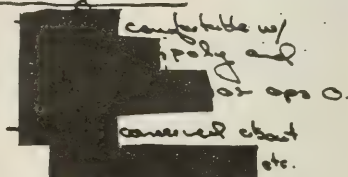 comfortable w/
poly and
or apo O.
concerned about
etc.